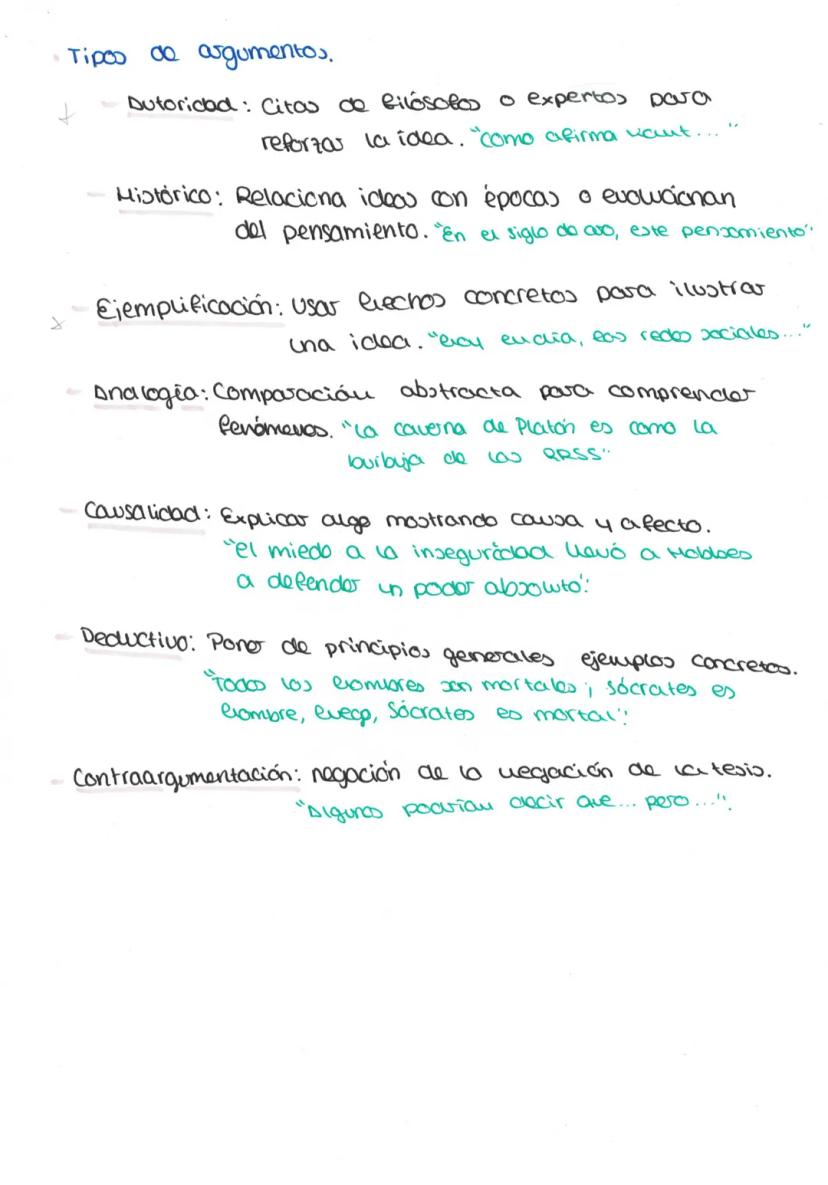 Tipos de argumentos.
Autoridad: Citas de filósofos o expertos para
reforzar la idea. "como afirma Kant..."
Histórico: Relaciona ideas con épocas o evolucionan
del pensamiento. "En el siglo de oro, este pensamiento"
Ejemplificación: Usar hechos concretos para ilustrar
una idea. "Hoy en día, las redes sociales..."
Analogía: Comparación abstracta para comprender
fenómenos. "La caverna de Platón es como la
burbuja de las RRSS"
Causalidad: Explicar algo mostrando causa y afecto.
"el miedo a la inseguridad llevó a Hobbes
a defender un poder absoluto".
Deductivo: Poner de principios generales ejemplos concretos.
"Todos los hombres son mortales; Sócrates es
hombre, luego, Sócrates es mortal".
Contraargumentación: negación de la negación de la tesis.
"Algunos podrían decir que... pero...".